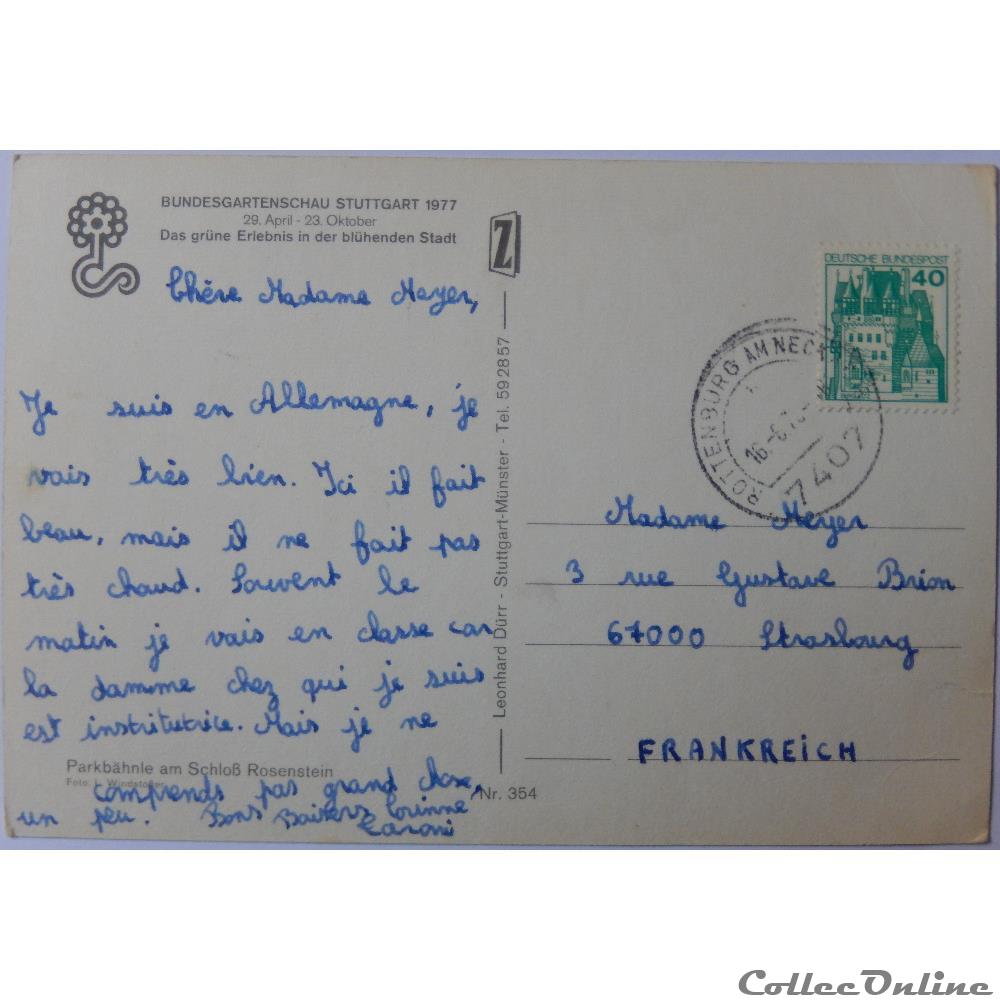 BUNDESGARTENSCHAU STUTTGART 1977
29. April - 23. Oktober
Das grüne Erlebnis in der blühenden Stadt
Chère Madame Meyer,
Je suis en Allemagne, je
vais très bien. Ici il fait
beau, mais il ne fait pas
très chaud. Souvent le
matin je vais en classe car
la damme chez qui je suis
est institutrice. Mais je ne
Parkbähnle am Schloß Rosenstein
Foto: L. Windstoßer
comprends pas grand chose,
un peu. Bons Baisers Corinne
Z
Leonhard Dürr - Stuttgart-Münster - Tel. 592857
Nr. 354
DEUTSCHE BUNDESPOST
40
ROTTENBURG AM NECKAR
7407
Madame Meyer
3 rue Gustave Brion
67000 Strasbourg
FRANKREICH
CollecOnline